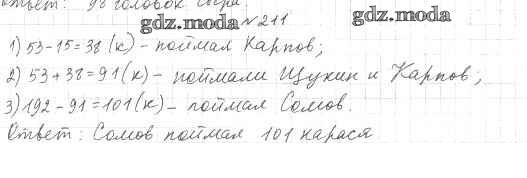 Ответ: 98 головок сыра.
gdz.moda №211 gdz.moda
1) 53-15=38 (к) - поймал Карпов;
2) 53+38=91(к) - поймали Щукин и Карпов;
3) 192-91=101(к) - поймал Сомов.
Ответ: Сомов поймал 101 карася